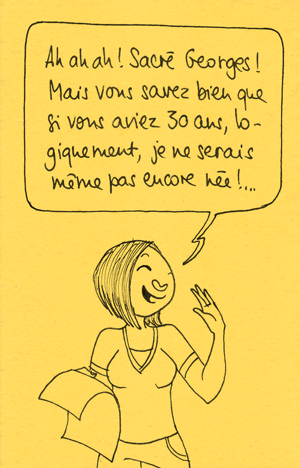 Ah ah ah ! Sacré Georges !
Mais vous savez bien que
si vous aviez 30 ans, lo-
giquement, je ne serais
même pas encore née !...